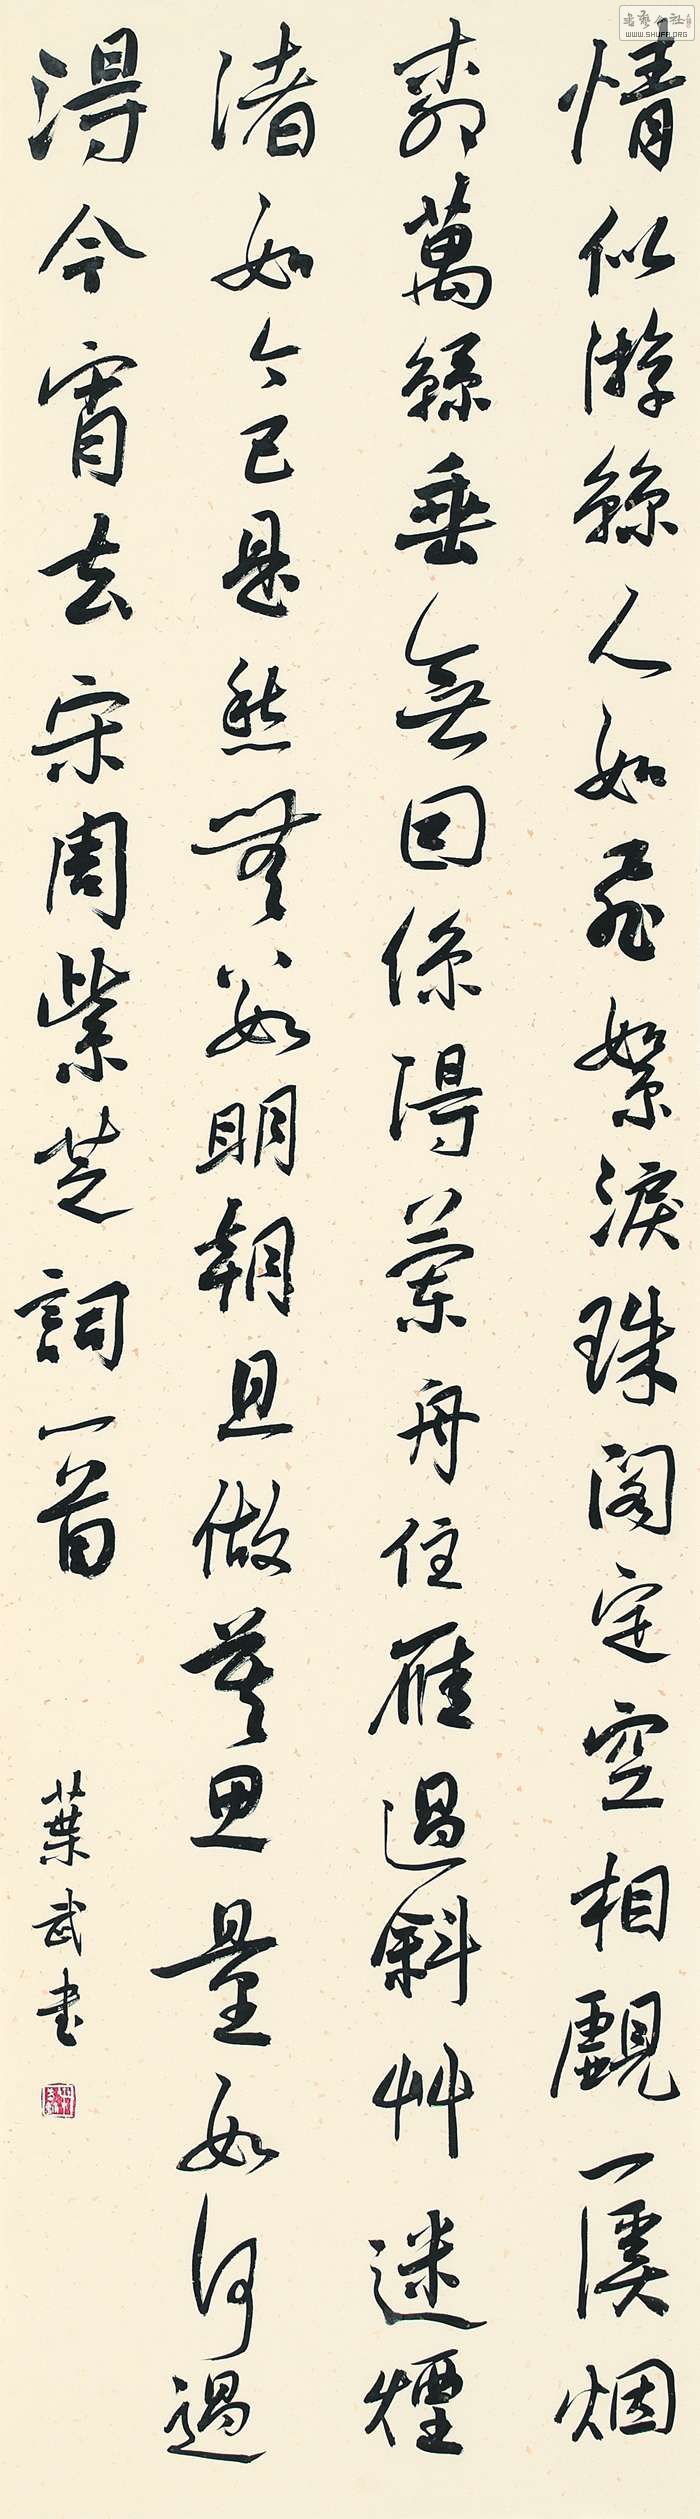 情似游絲人如飛絮淚珠閣定空相覷一溪烟
柳萬絲垂無囙係得蘭舟住雁過斜艸迷煙
渚如今已是愁無數明朝且做莫思量如何過
得今宵去宋周紫芝詞一首
葉武書
WWW.SHUFA.ORG